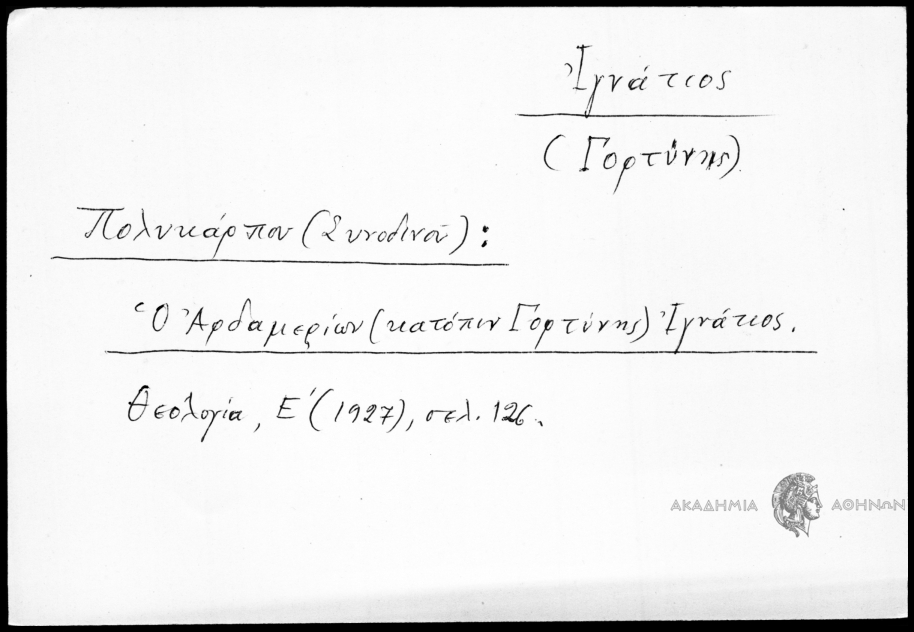 Ἰγνάτιος
(Γορτύνης)
Πολυκάρπου (Συνοδινοῦ):
Ὁ Ἀρδαμερίων (κατόπιν Γορτύνης) Ἰγνάτιος.
Θεολογία, Ε΄ (1927), σελ. 126.
ΑΚΑΔΗΜΙΑ ΑΘΗΝΩΝ